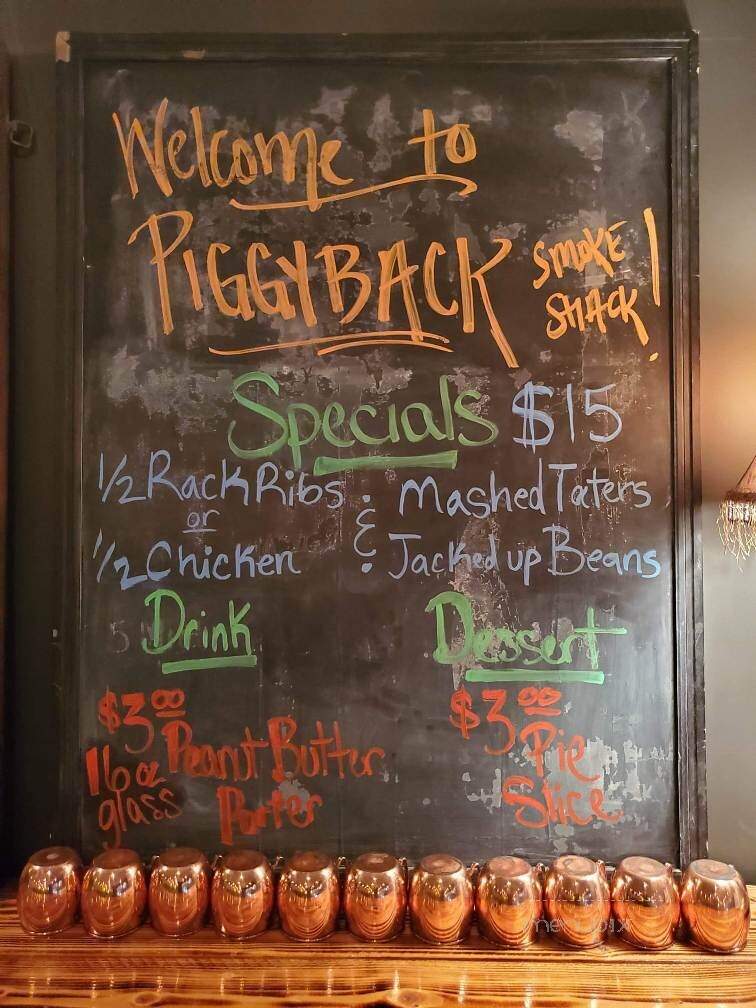 Welcome to
PIGGYBACK SMOKE SHACK!
Specials $15
1/2 Rack Ribs : Mashed Taters
or &
1/2 Chicken : Jacked up Beans
Drink Dessert
$3.00 Peanut Butter Porter
16 oz glass
$3.00 Pie Slice